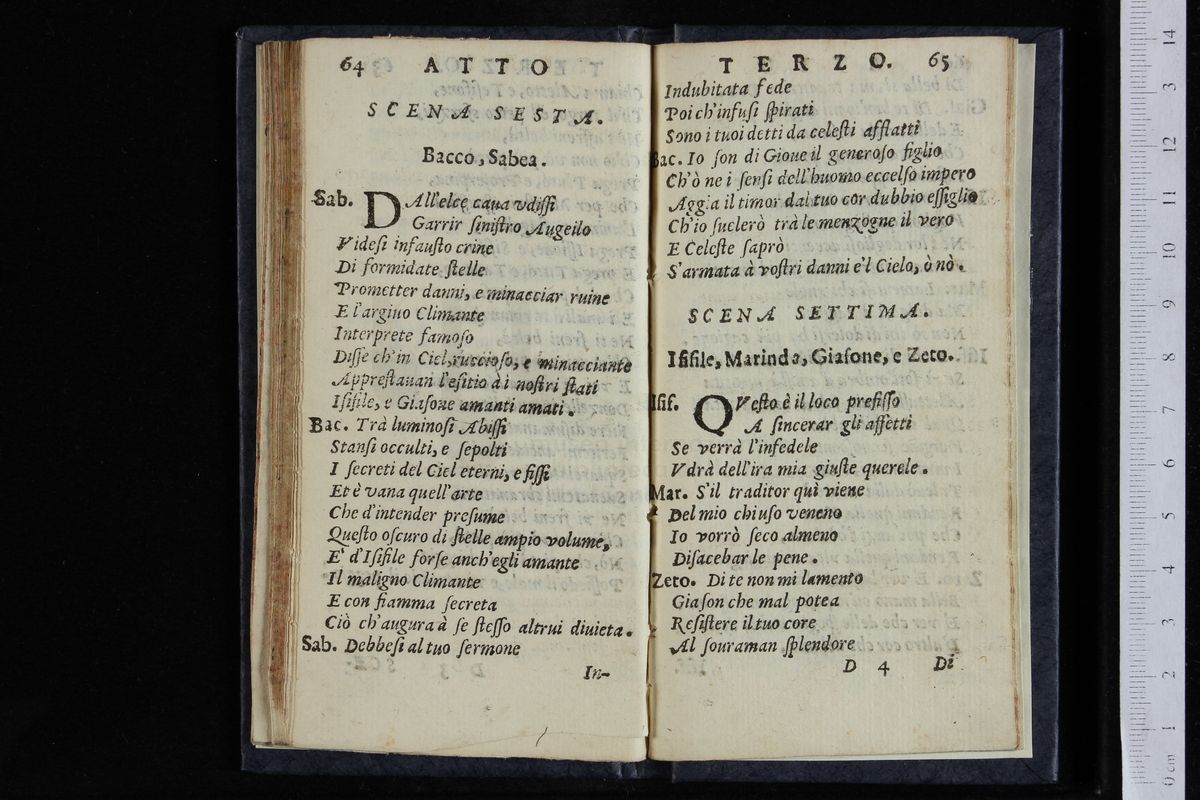 64 ATTO
SCENA SESTA.
Bacco, Sabea.
Sab. DAll'elce caua vdiſſi
Garrir ſiniſtro Augello
Videſi infauſto crine
Di formidate ſtelle
Prometter danni, e minacciar ruine
E l'argiuo Climante
Interprete famoſo
Diſſe ch'in Ciel, ruccioſo, e minacciante
Appreſtauan l'eſitio di noſtri ſtati
Iſiſile, e Giaſone amanti amati.
Bac. Trà luminoſi Abiſſi
Stanſi occulti, e ſepolti
I ſecreti del Ciel eterni, e fiſſi
Et è vana quell'arte
Che d'intender preſume
Queſto oſcuro di ſtelle ampio volume,
E' d'Iſiſile forſe anch'egli amante
Il maligno Climante
E con fiamma ſecreta
Ciò ch'augura à ſe ſteſſo altrui diuieta.
Sab. Debbeſi al tuo ſermone
In-
TERZO. 65
Indubitata fede
Poi ch'infuſi ſpirati
Sono i tuoi detti da celeſti afflatti
Bac. Io ſon di Gioue il generoſo figlio
Ch'ò ne i ſenſi dell'huomo eccelſo impero
Aggia il timor dal tuo cor dubbio eſſiglio
Ch'io ſuelerò trà le menzogne il vero
E Celeſte ſaprò
S'armata à voſtri danni e'l Cielo, ò nò.
SCENA SETTIMA.
Iſifile, Marinda, Giaſone, e Zeto.
Iſif. QVeſto è il loco prefiſſo
A ſincerar gli affetti
Se verrà l'infedele
Vdrà dell'ira mia giuſte querele.
Mar. S'il traditor quì viene
Del mio chiuſo veneno
Io vorrò ſeco almeno
Diſacebar le pene.
Zeto. Di te non mi lamento
Giaſon che mal potea
Reſiſtere il tuo core
Al ſouraman ſplendore
D 4 Di